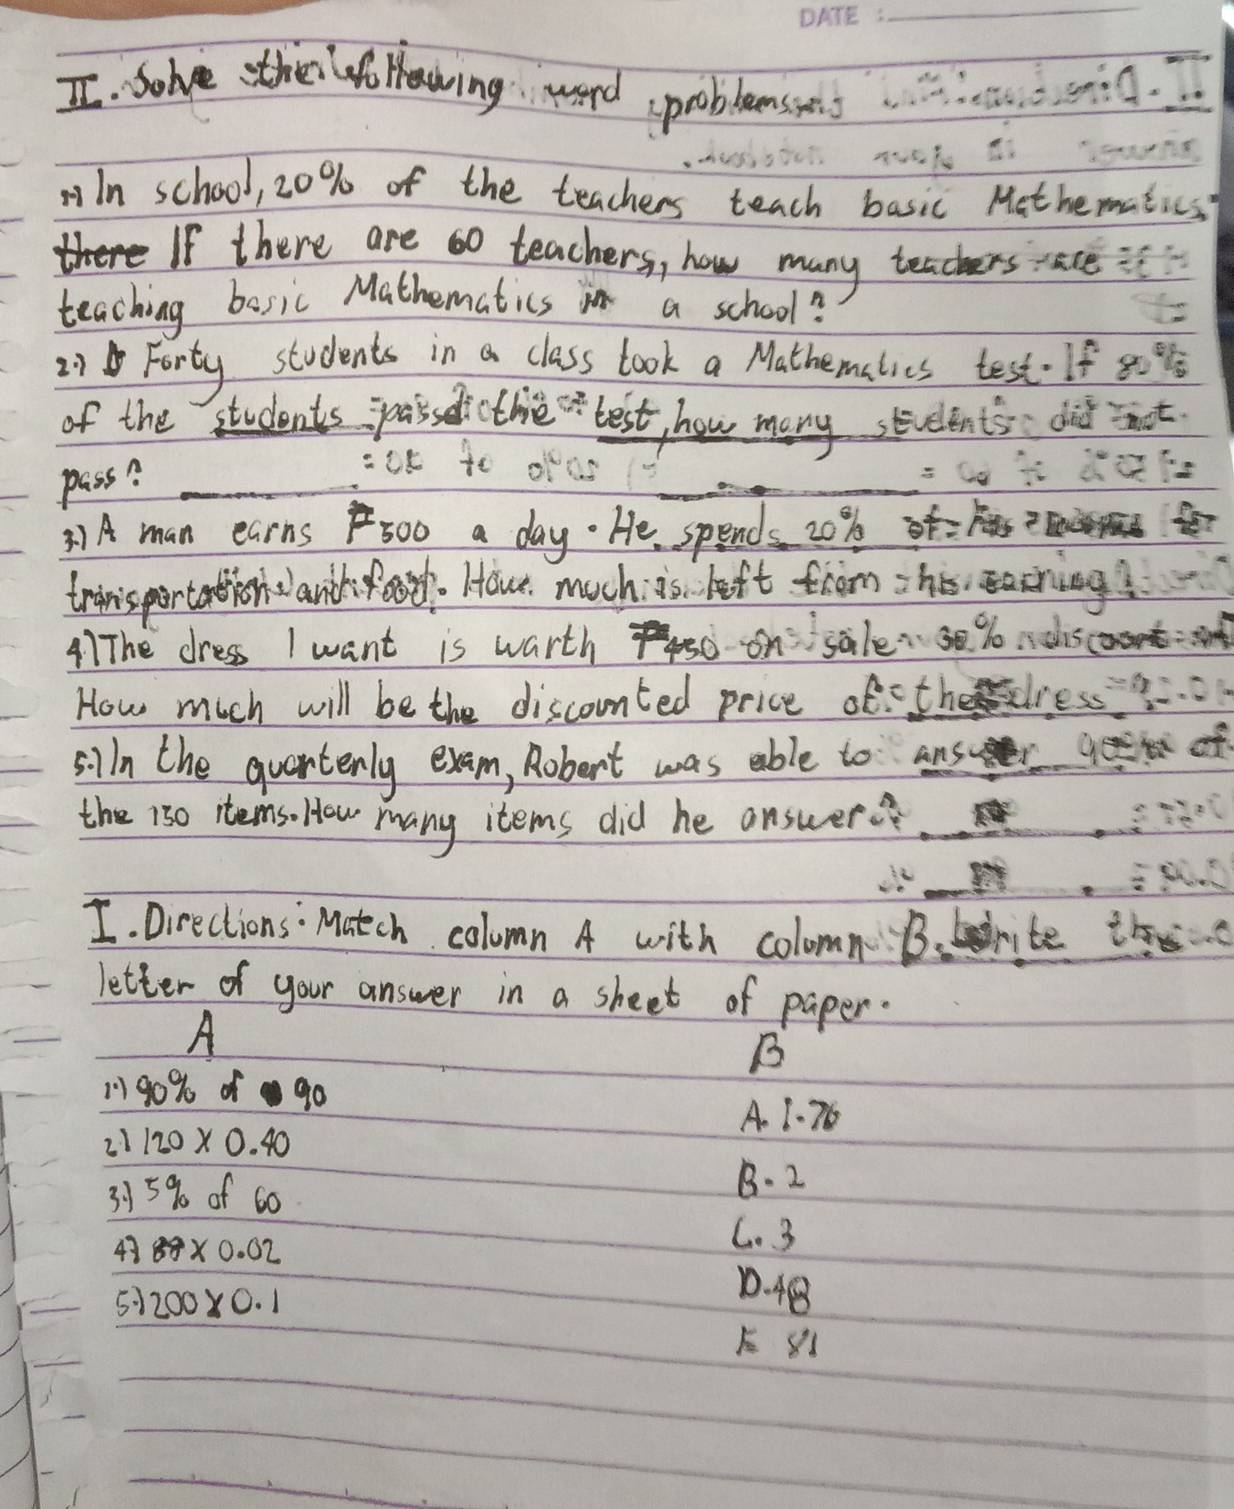 DATE :
II. Solve the following word problems
1.) In school, 20% of the teachers teach basic Mathematics.
there If there are 60 teachers, how many teachers are
teaching basic Mathematics in a school?
2.) Forty students in a class took a Mathematics test. If 80%
of the students passed the test, how many students did not
pass?
3.) A man earns ₱500 a day. He spends 20% of his for
transportation and food. How much is left from his earning?
4.) The dress I want is warth ₱450 on sale 30% discount
How much will be the discounted price of the dress?
5.) In the quarterly exam, Robert was able to answer of
the 150 items. How many items did he answer?
I. Directions: Match column A with column B. Write the
letter of your answer in a sheet of paper.
A B
1.) 90% of 90
A. 1.76
2.) 120 x 0.40
B. 2
3.) 5% of 60
C. 3
4.) 88 x 0.02
D. 48
5.) 200 x 0.1
E 81